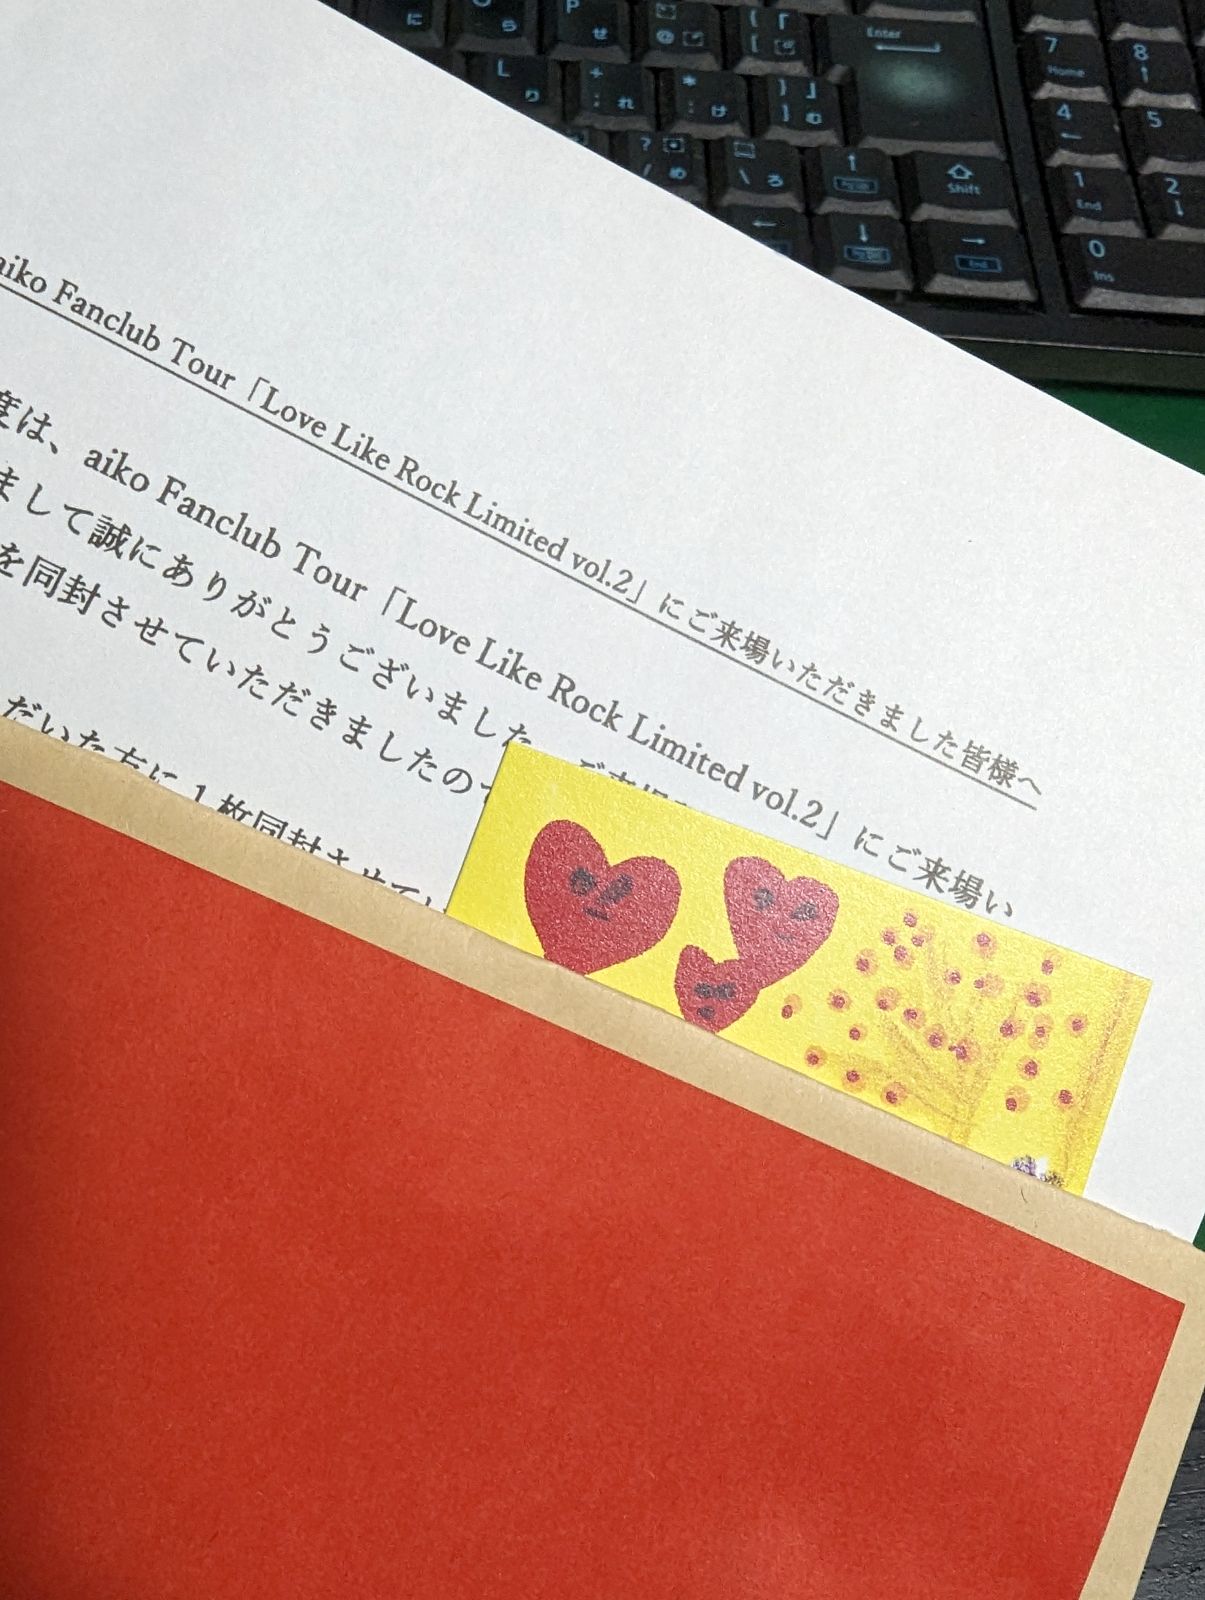 に
ら
P
せ
@
{ 「
[
Enter
7
Home
8
↑
L
り
+
; れ
*
: け
} 」
] む
4
←
5
?
/ め
\ ろ
↑
Shift
1
End
2
↓
←
↓
→
End
0
Ins
aiko Fanclub Tour「Love Like Rock Limited vol.2」にご来場いただきました皆様へ
度は、aiko Fanclub Tour「Love Like Rock Limited vol.2」にご来場い
まして誠にありがとうございました。ご来場
を同封させていただきましたので
だいた方に1枚同封させてい